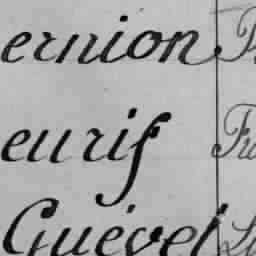 ernion
eurif Fr
Guével